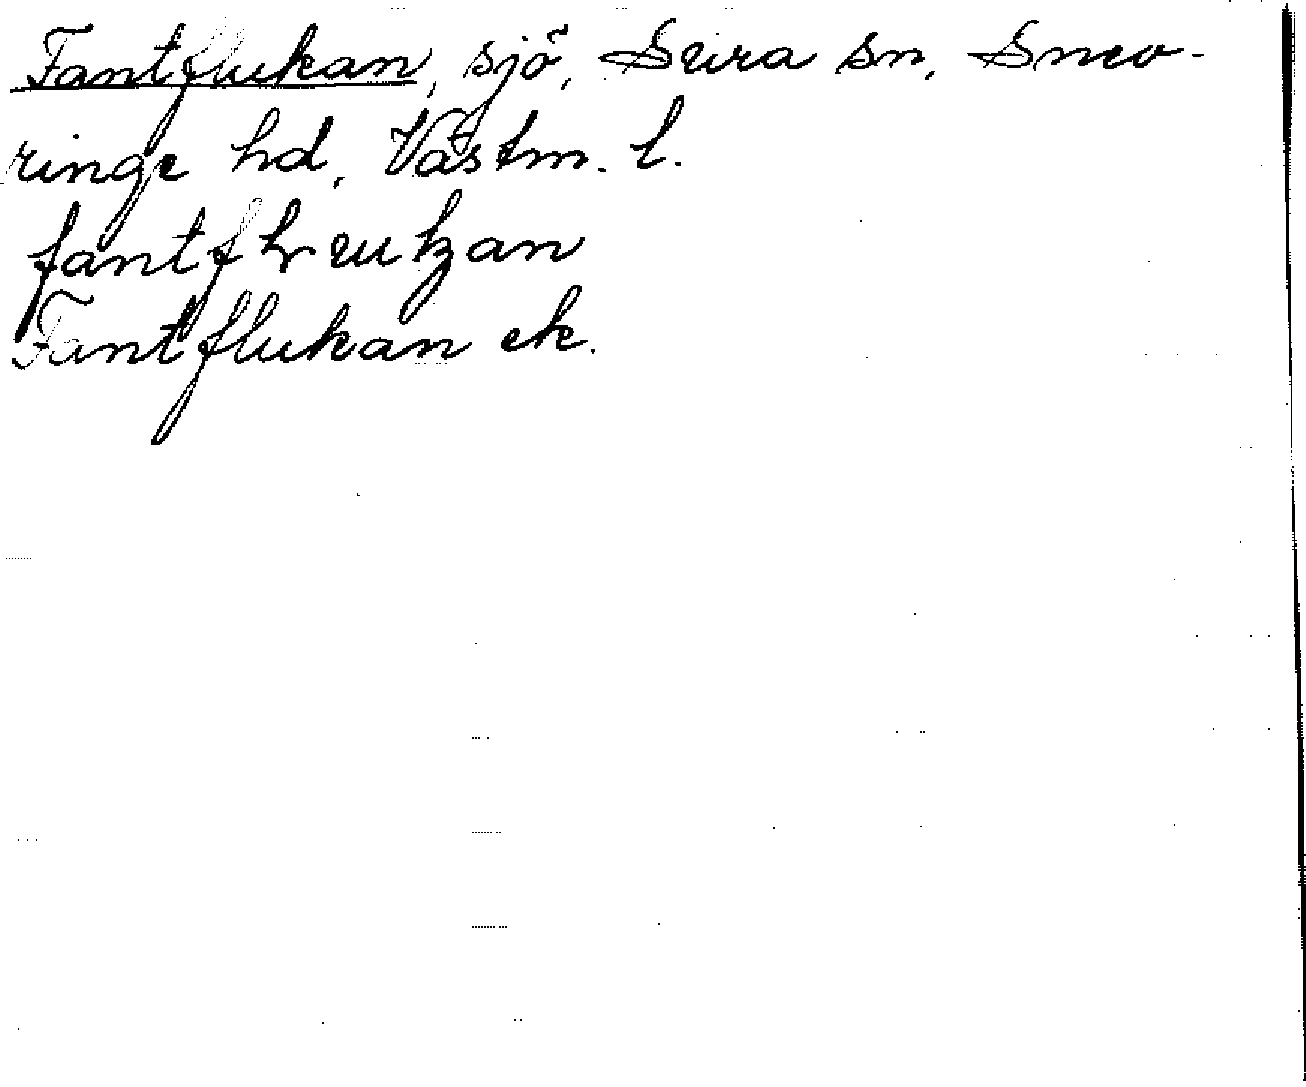 Fantflukan, sjö, Sura sn, Snev-
ringe hd, Västm. l.
Fantflukan ek.